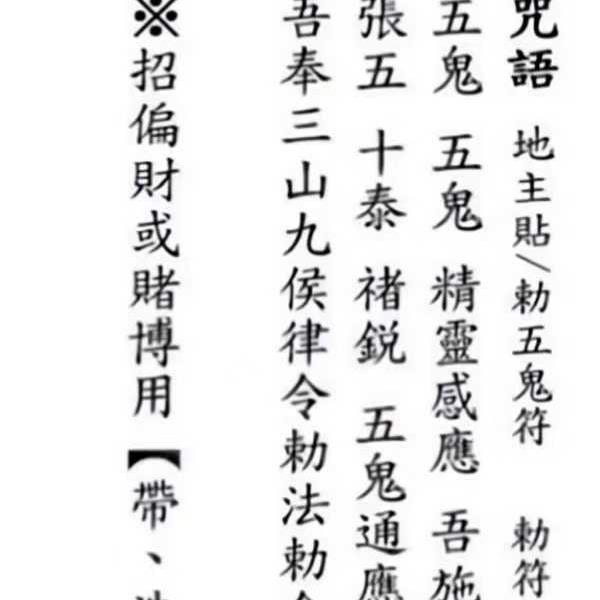 咒語 地主貼/勅五鬼符 勅符
五鬼 五鬼 精靈感應 吾施
張五 十泰 褚銳 五鬼通應
吾奉三山九侯律令勅法勅令
※招偏財或賭博用【帶、